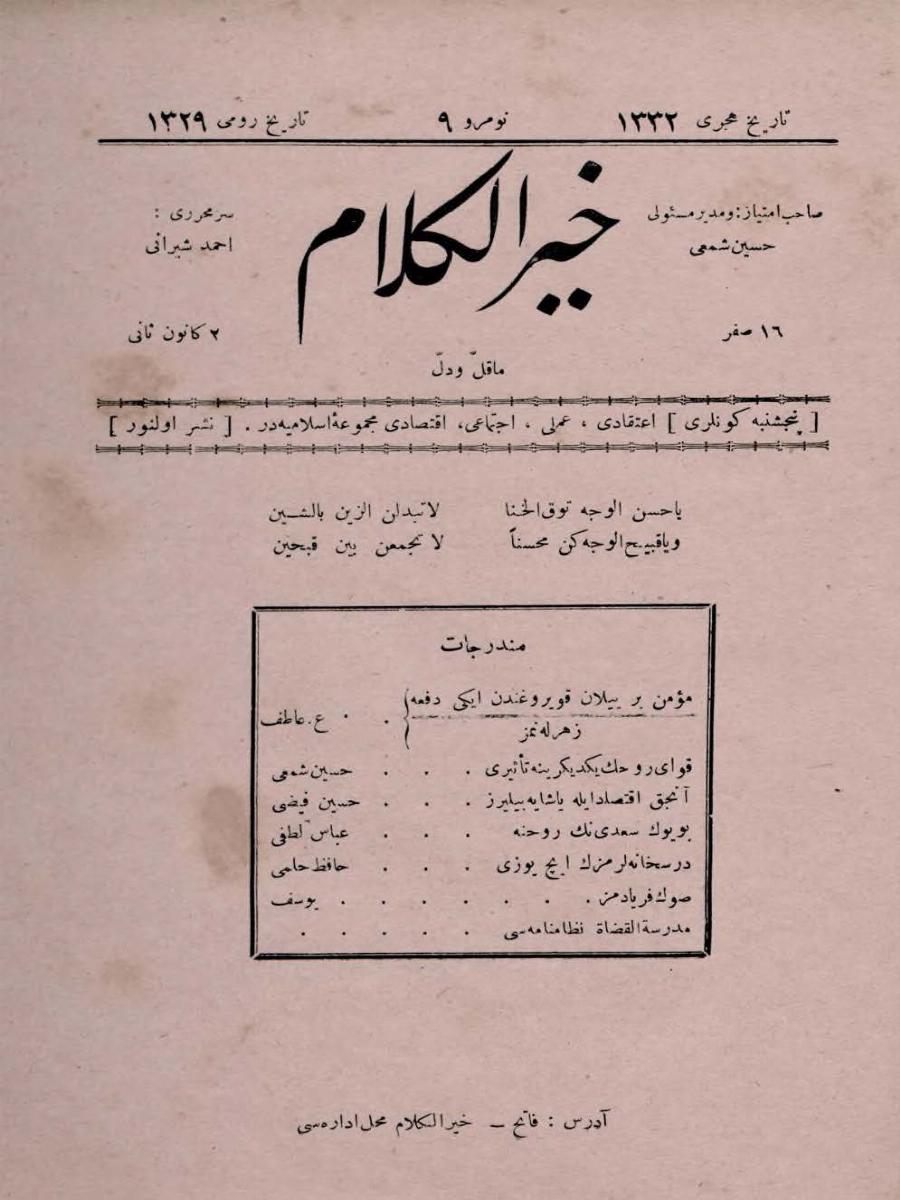 تاریخ هجری ۱۳۳۲ نومرو ۹ تاریخ رومی ۱۳۲۹
خیر الکلام
صاحب امتیاز : ومدیر مسئولی
حسین شمعی
سر محرری :
احمد شیرانی
۱٦ صفر
۲ کانون ثانی
ماقلّ ودلّ
[ پنجشنبه کونلری ] اعتقادی ، عملی ، اجتماعی، اقتصادی مجموعهٔ اسلامیه در . [ نشر اولنور ]
یاحسن الوجه توق الخنا لاتبدلن الزین بالشین
ویاقبیح الوجه کن محسناً لا تجمعن بین قبحین
مندرجات
مؤمن بر ییلان قویروغندن ایکی دفعه
زهرله نمز . . ع. عاطف
قوای روحك یکدیکرینه تأثیری . . . حسین شمعی
آنجق اقتصاد ایله یاشایه بیلیرز . . . حسین فیضی
بویوك سعدی نك روحنه . . . عباس لطفی
درسخانه لرمزك ایچ یوزی . . . حافظ حلمی
صوك فریادمز . . . . . . . یوسف
مدرسة القضاة نظامنامه سی . . . . .
آدرس : فاتح — خیر الکلام محل اداره سی